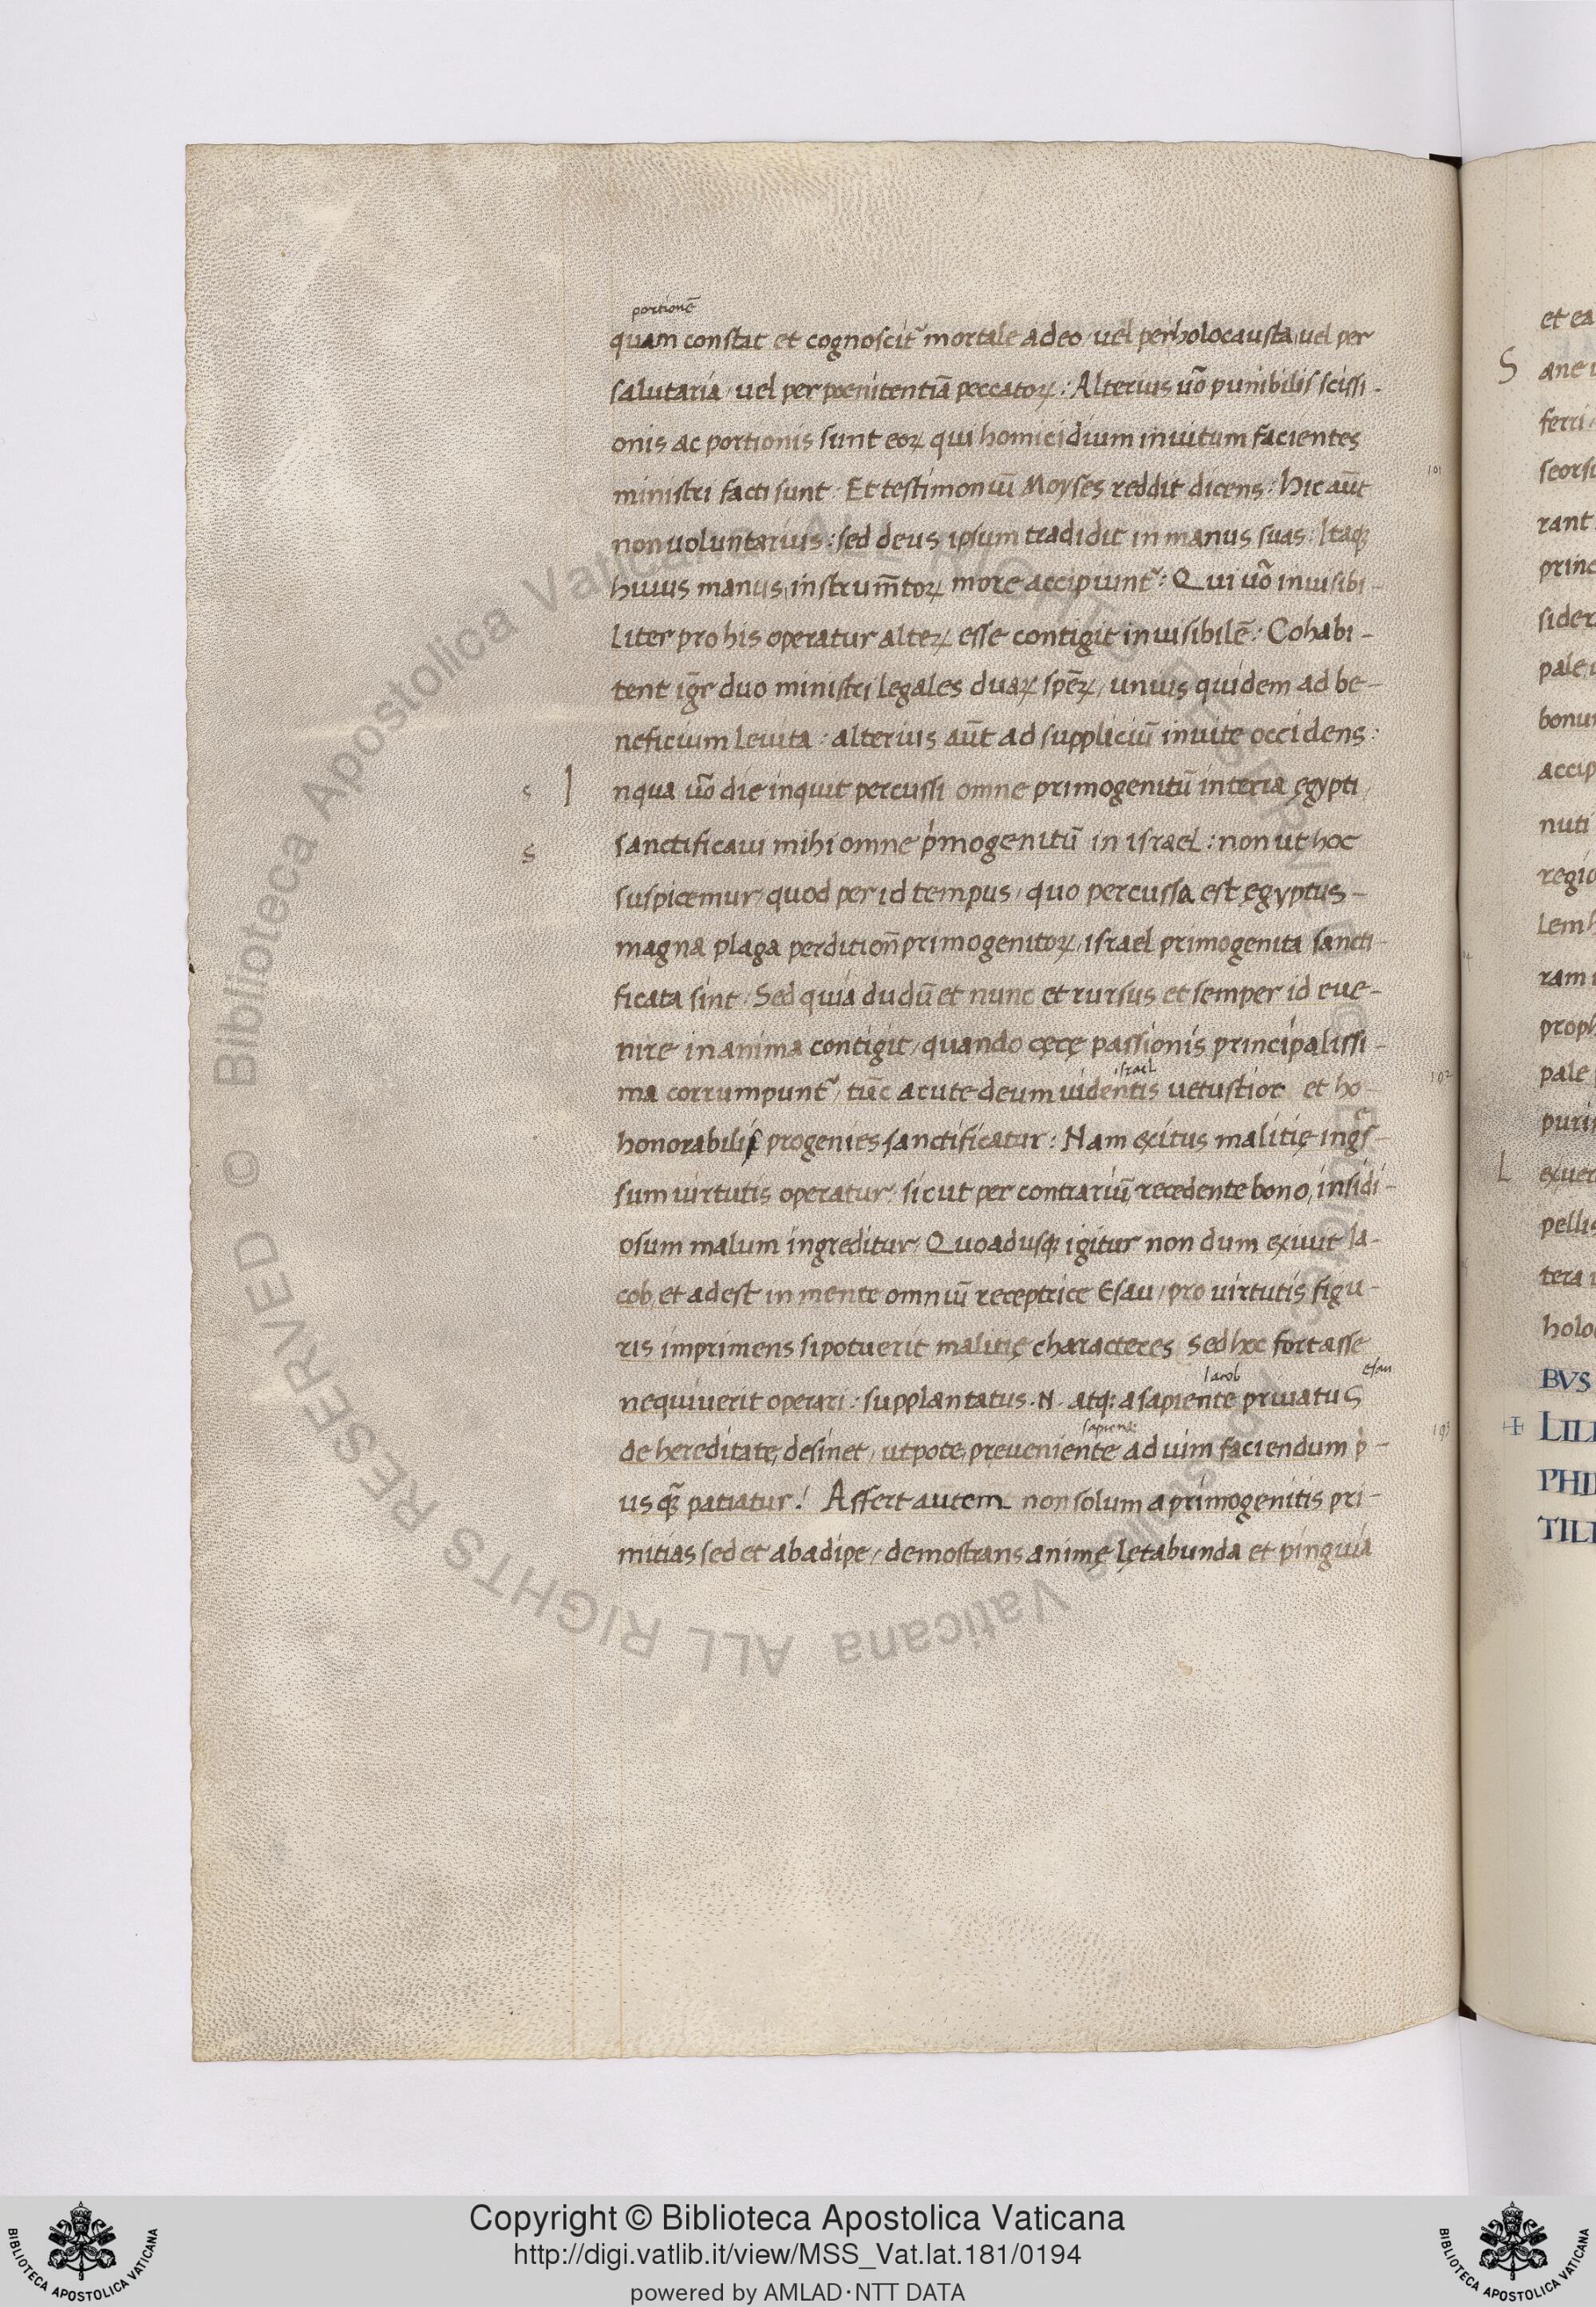 portionē
quam constat et cognoscit᷑ mortale adeo, vel per holocausta, vel per
salutaria, vel per poenitentiā peccatoꝝ: Alterius uō punibilis scissi-
onis ac portionis sunt eoꝝ qui homicidium invitum facientes
101
ministri facti sunt. Et testimoniū Moyses reddit dicens: Hic aūt
non uoluntarius: sed deus ipsum tradidit in manus suas: Itaqꝫ
huius manus, instrum̄toꝝ more accipiunt᷑: Qui uō inuisibi-
liter pro his operatur alteꝝ esse contigit inuisibilē: Cohabi-
tent ig̅r duo ministri legales duaꝝ spēꝝ, unius quidem ad be-
neficium leuita: alterius aūt ad suppliciū inuite occidens:
s I nqua uō die inquit percussi omne primogenitū in terra ęgypti,
s sanctificaui mihi omne pͥmogenitū in israel: non ut hoc
suspicemur, quod per id tempus, quo percussa est ęgyptus-
magna plaga perdition̄ primogenitoꝝ, israel primogenita sancti-
ficata sint, Sed quia dudū et nunc et rursus et semper id eue-
nire in anima contigit, quando cęcę passionis principalissi-
israel
102
ma corrumpunt᷑, tūc acute deum uidentis uetustior et ho-
honorabilis progenies sanctificatur: Nam exitus malitię ing͛s-
sum uirtutis operatur, sicut per contrariū, recedente bono, insidi-
osum malum ingreditur, Quoadusqꝫ igitur non dum exiuit Ia-
cob, et adest in mente omniū receptrice Esau, pro uirtutis figu-
ris imprimens si potuerit malitię characteres, Sed hoc fortasse
Iacob esau
nequiuerit operari: supplantatus .N. atqꝫ a sapiente priuatus
sapiens
103
de hereditate, desinet, utpote, pręueniente ad uim faciendum pͥ-
us qꝫ̄ patiatur! Affert autem non solum a primogenitis pri-
mitias sed et ab adipe, demostrans animę lętabunda et pinguia
S
L
BVS
LILI
PHIL
TILI
© Biblioteca Apostolica Vaticana ALL RIGHTS RESERVED
Copyright © Biblioteca Apostolica Vaticana
http://digi.vatlib.it/view/MSS_Vat.lat.181/0194
powered by AMLAD·NTT DATA
BIBLIOTECA APOSTOLICA VATICANA
BIBLIOTECA APOSTOLICA VATICANA